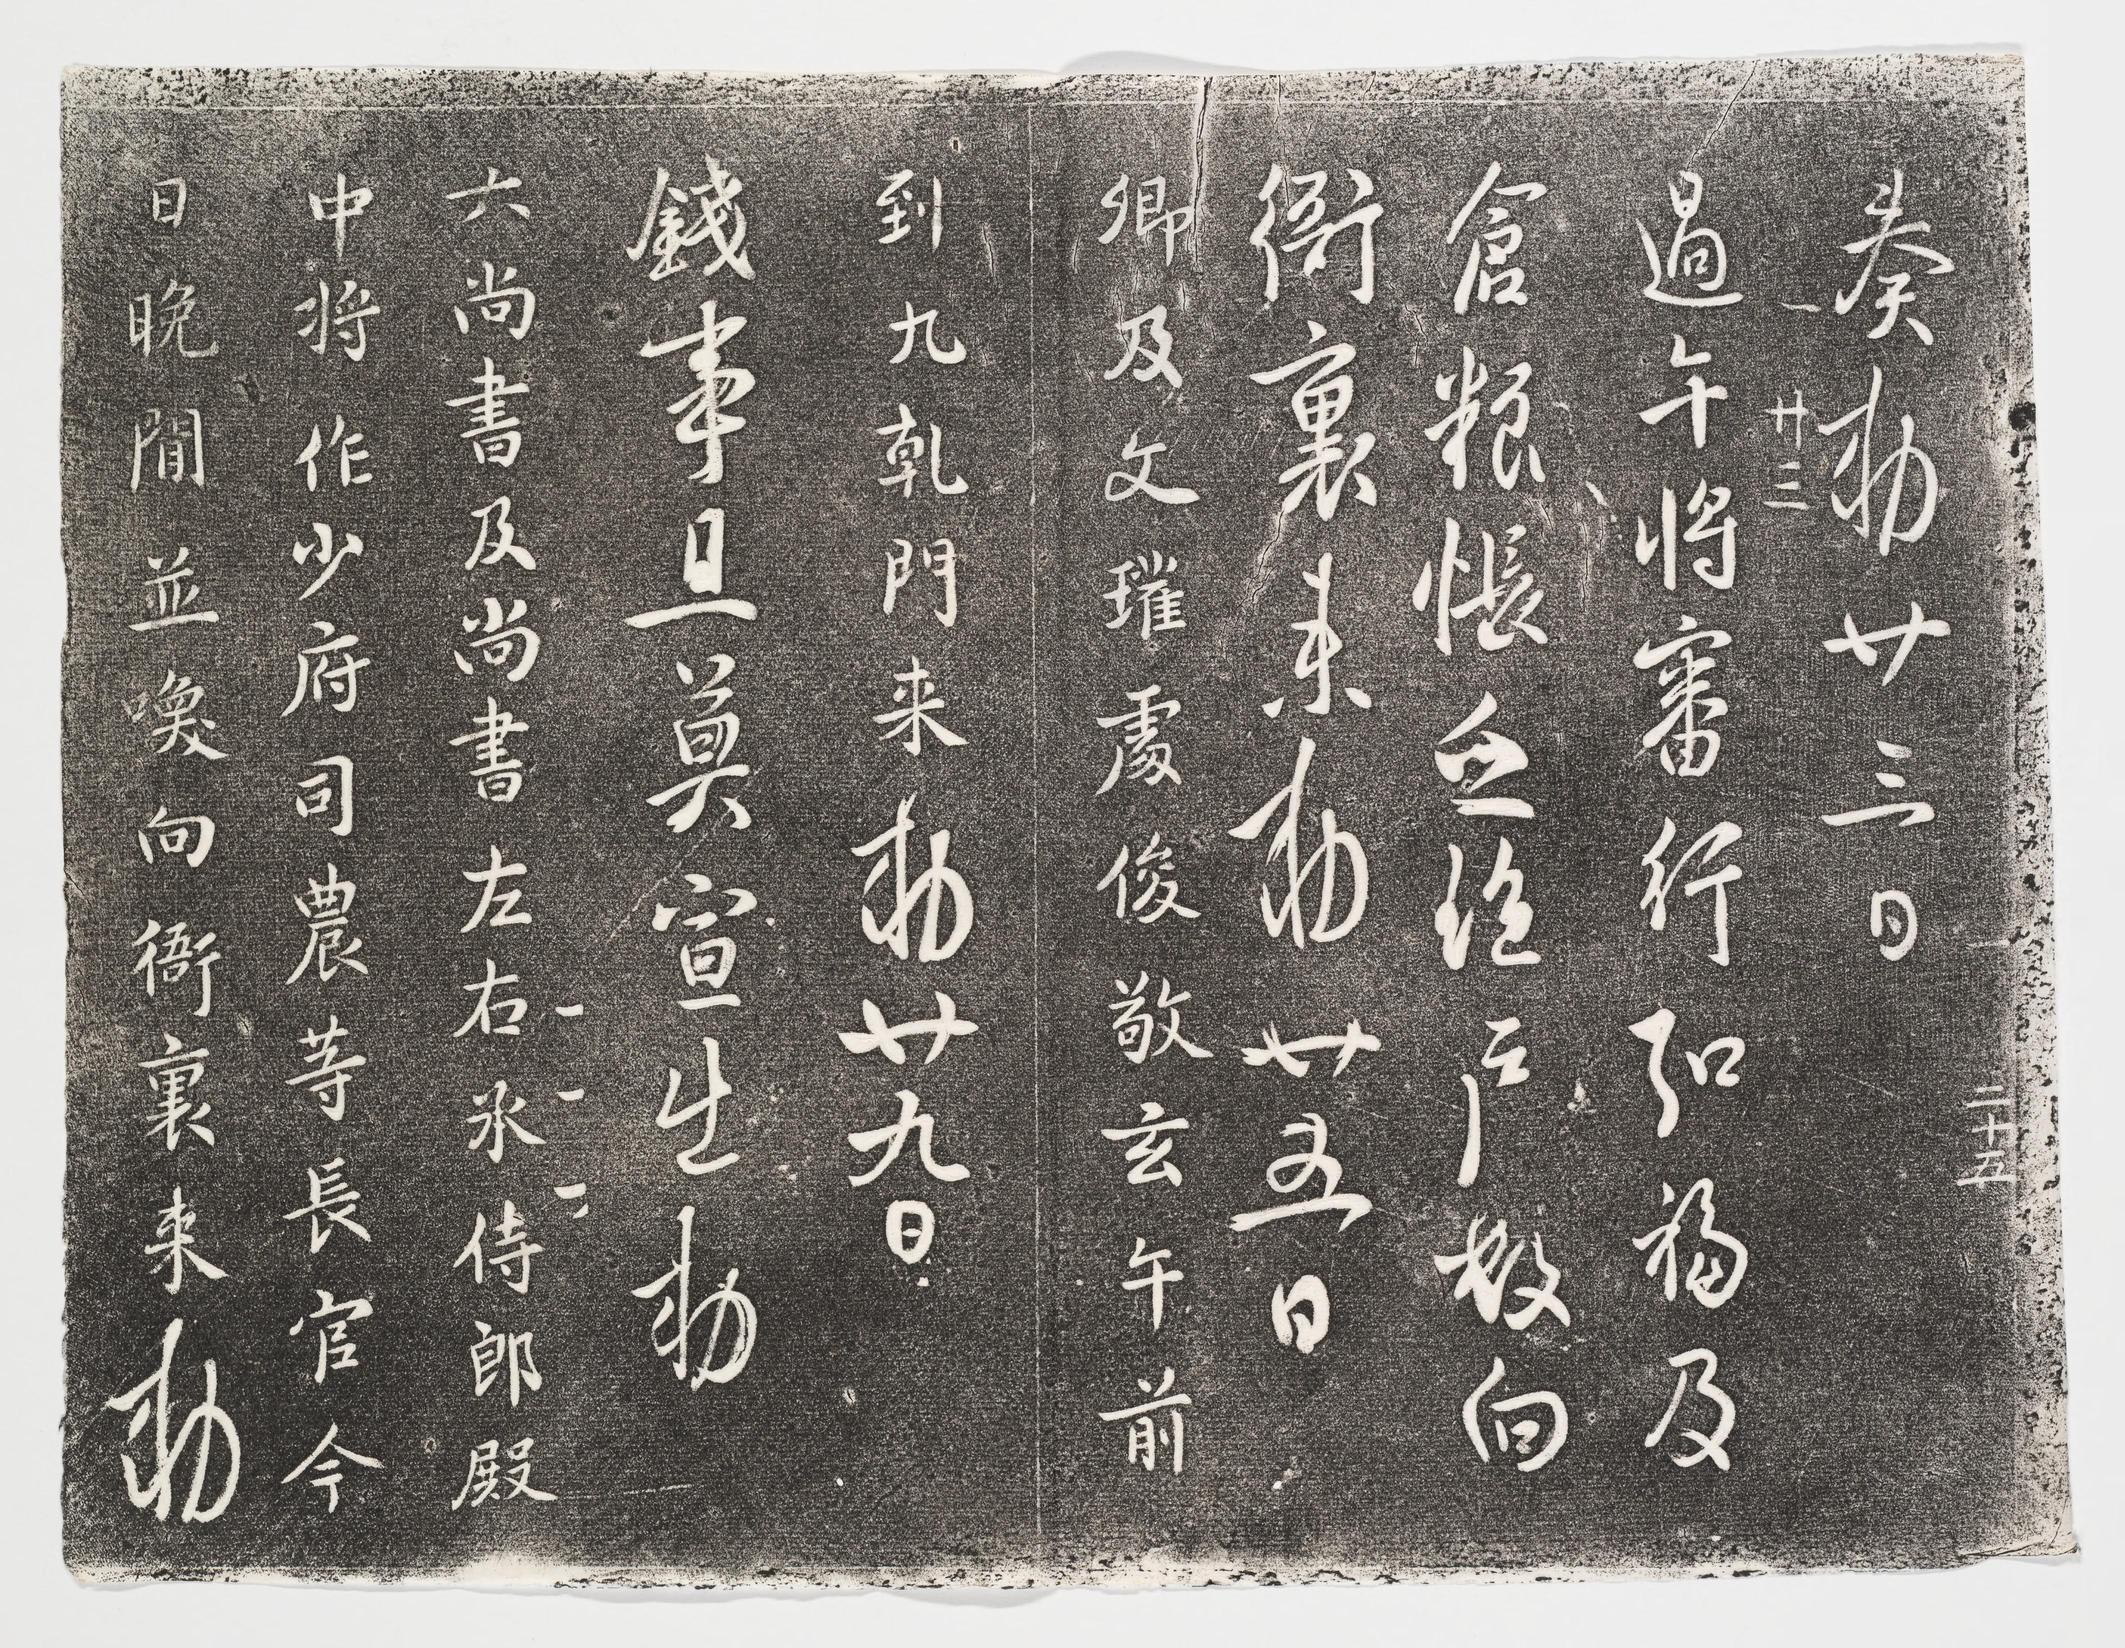 二十五
奏勅廿三日
廿三
過午將審行弘福及
倉粮帳戶向
衙裏来勅廿五日
卿及文瓘處俊敬玄午前
到九乾門来勅廿九日
錢事且莫宣出勅
六尚書及尚書左右丞侍郎殿
中将作少府司農等長官今
日晚間並喚向衙裏来勅